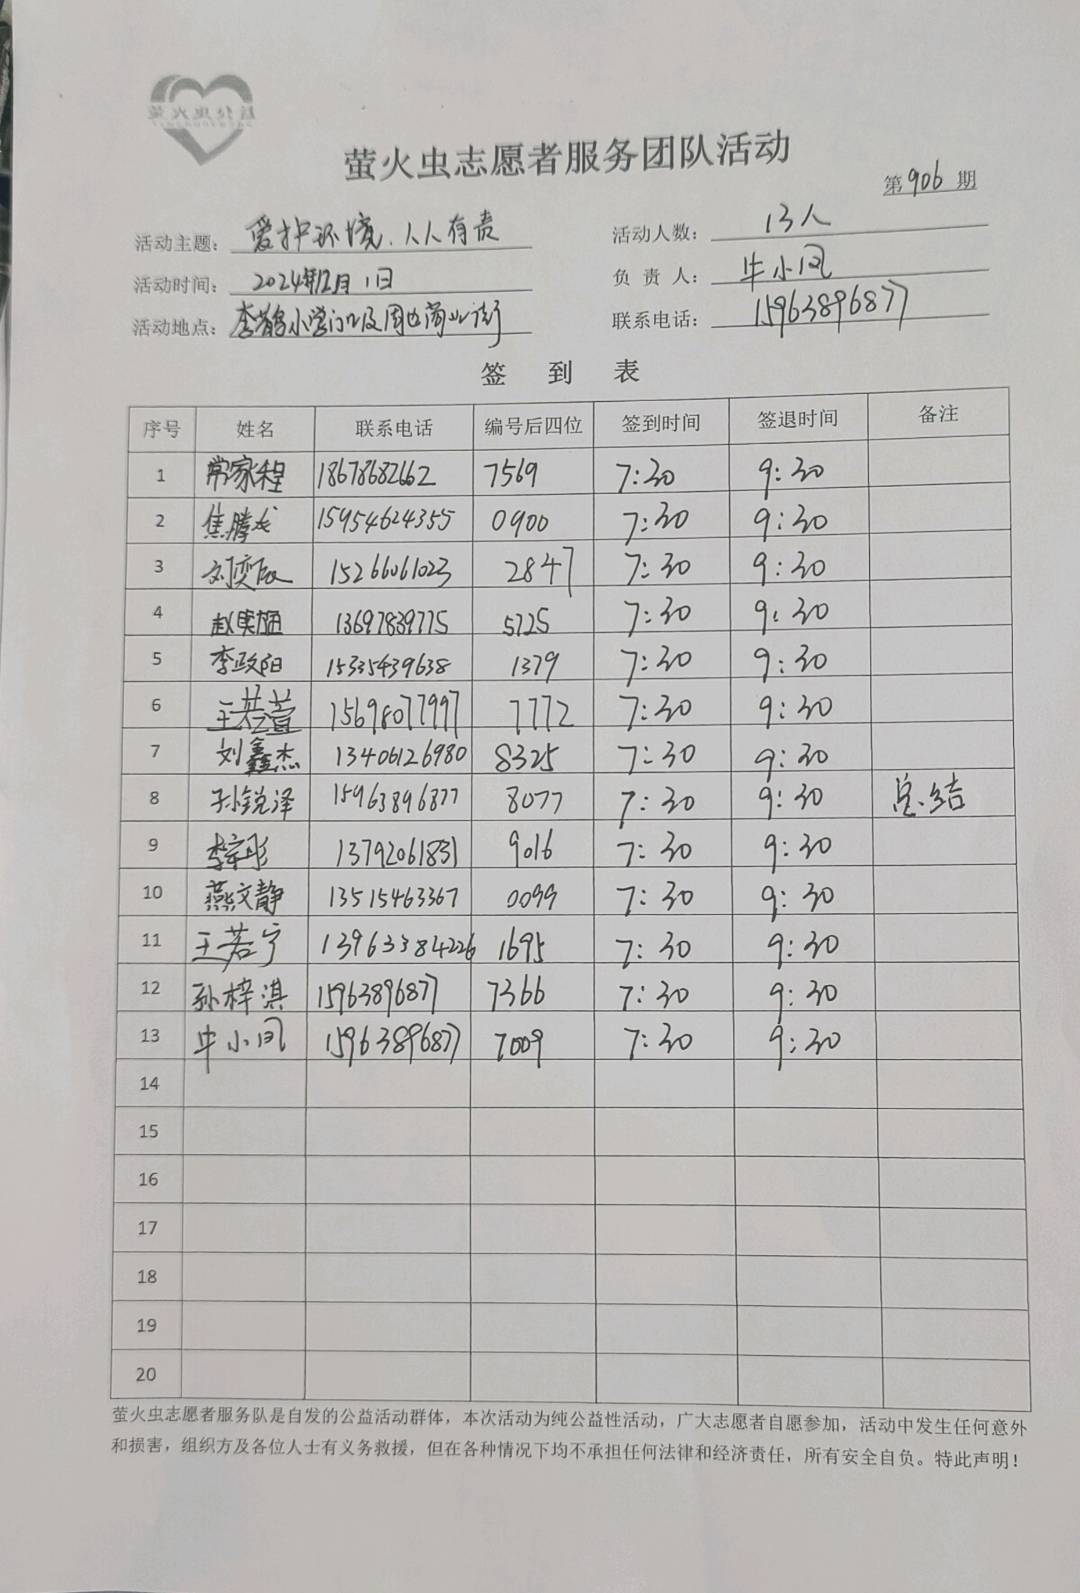 萤火虫志愿者服务团队活动
第 906 期
活动主题：爱护环境、人人有责 活动人数：13人
活动时间：2024年12月1日 负责人：牛小凤
活动地点：李鹊小学门口及周边商业街 联系电话：15963896877
签到表
序号 姓名 联系电话 编号后四位 签到时间 签退时间 备注
1 常家程 18678682662 7569 7:30 9:30
2 焦腾龙 15954624355 0900 7:30 9:30
3 刘奕辰 15266061023 2847 7:30 9:30
4 赵 13697839775 5725 7:30 9:30
5 李政阳 15335439638 1379 7:30 9:30
6 王若萱 15698077997 7772 7:30 9:30
7 刘鑫杰 13406126980 8325 7:30 9:30
8 孙锐泽 15963896877 8077 7:30 9:30 总结
9 李彦彤 13792061831 9016 7:30 9:30
10 燕文静 13515463367 0099 7:30 9:30
11 王若宁 13963384226 1695 7:30 9:30
12 孙梓淇 15963896877 7366 7:30 9:30
13 牛小凤 15963896877 7009 7:30 9:30
14
15
16
17
18
19
20
萤火虫志愿者服务队是自发的公益活动群体，本次活动为纯公益性活动，广大志愿者自愿参加，活动中发生任何意外
和损害，组织方及各位人士有义务救援，但在各种情况下均不承担任何法律和经济责任，所有安全自负。特此声明！